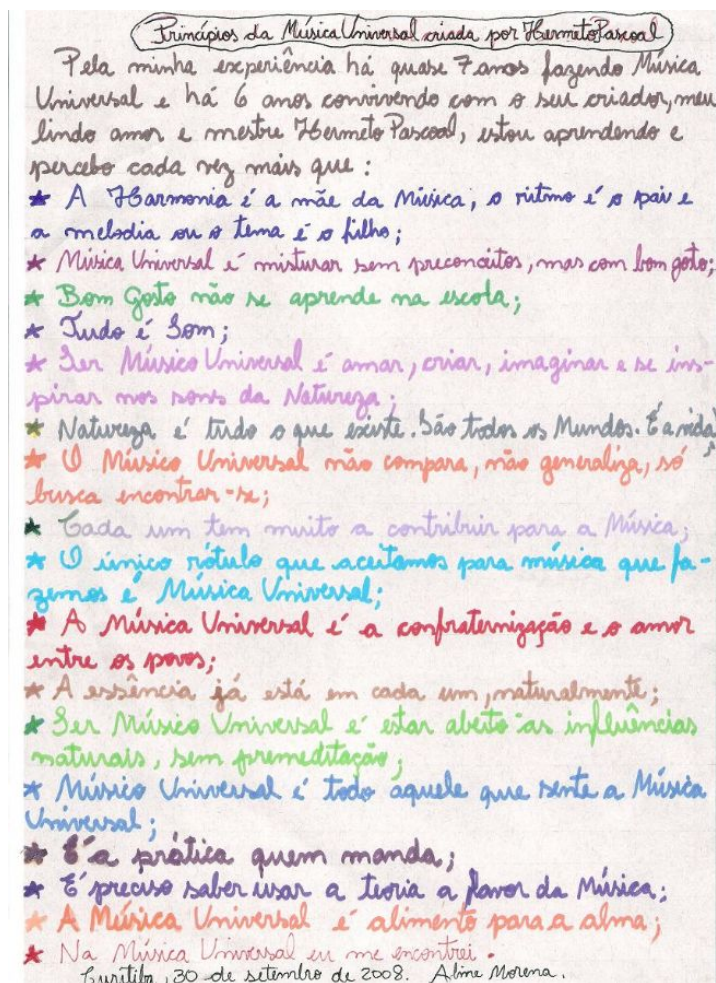 Princípios da Música Universal criada por Hermeto Pascoal
Pela minha experiência há quase 7 anos fazendo Música
Universal e há 6 anos convivendo com o seu criador, meu
lindo amor e mestre Hermeto Pascoal, estou aprendendo e
percebo cada vez mais que:
★ A Harmonia é a mãe da Música, o ritmo é o pai e
a melodia ou o tema é o filho;
★ Música Universal é misturar sem preconceitos, mas com bom gosto;
★ Bom Gosto não se aprende na escola;
★ Tudo é Som;
★ Ser Músico Universal é amar, criar, imaginar e se ins-
pirar nos sons da Natureza;
★ Natureza é tudo o que existe. São todos os Mundos. É a vida;
★ O Músico Universal não compara, não generaliza, só
busca encontrar-se;
★ Cada um tem muito a contribuir para a Música;
★ O único rótulo que aceitamos para música que fa-
zemos é Música Universal;
★ A Música Universal é a confraternização e o amor
entre os povos;
★ A essência já está em cada um, naturalmente;
★ Ser Músico Universal é estar aberto às influências
naturais, sem premeditação;
★ Músico Universal é todo aquele que sente a Música
Universal;
★ É a prática quem manda;
★ É preciso saber usar a teoria a favor da Música;
★ A Música Universal é alimento para a alma;
★ Na Música Universal eu me encontrei.
Curitiba, 30 de setembro de 2008. Aline Morena.